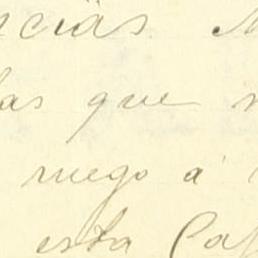 ncias.
las que
ruego á
esta Ca